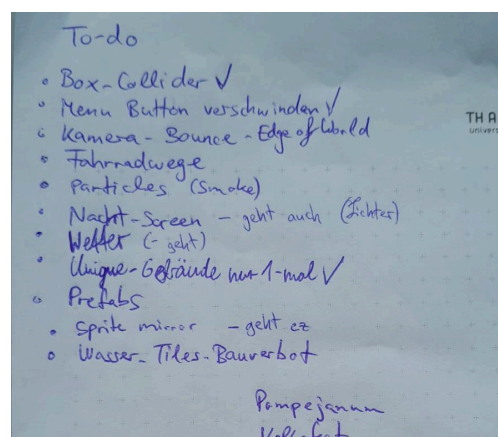 To-do
• Box-Collider ✓
• Menu Button verschwinden ✓
• Kamera-Bounce-Edge of World
• Fahrradwege
• Particles (Smoke)
• Nacht-Screen - geht auch (Lichter)
• Wetter (- geht)
• Unique-Gebäude nur 1-mal ✓
• Prefabs
• Sprite mirror - geht ez
• Wasser-Tiles-Bauverbot
TH A
univers
Pompejanum